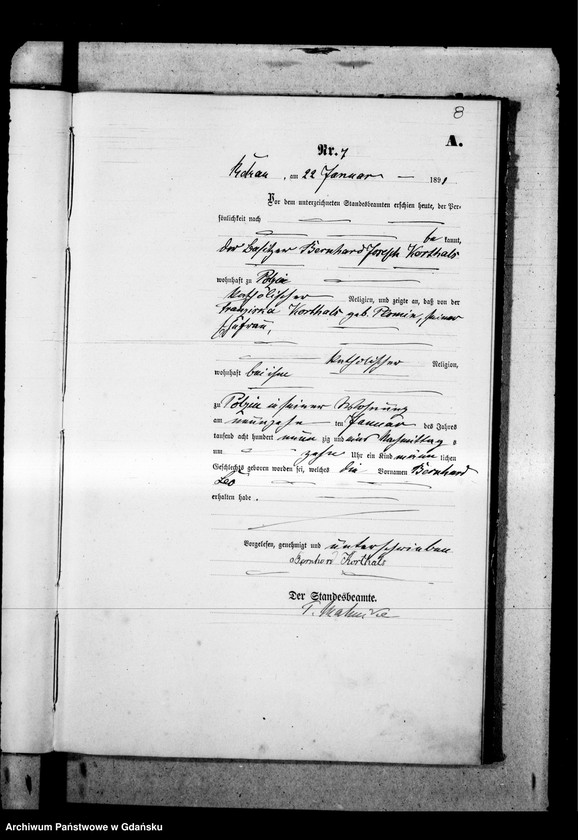 8
A.
Nr. 7
am 22 Januar 1891
Vor dem unterzeichneten Standesbeamten erschien heute, der Per-
sönlichkeit nach
be kannt,
der Besitzer Bernhard Joseph Korthals
wohnhaft zu Polzin
katholischer Religion, und zeigte an, daß von der
Franziska Korthals geb. seiner
Ehefrau,
katholischer Religion,
wohnhaft bei ihm
zu Polzin in seiner Wohnung
am neunzehn ten Januar des Jahres
tausend acht hundert neun zig und eins Nachmittag s
um zehn Uhr ein Kind männ lichen
Geschlechts geboren worden sei, welches die Vornamen Bernhard
Leo
erhalten habe.
Vorgelesen, genehmigt und unterschrieben
Bernhard Korthals
Der Standesbeamte.
Archiwum Państwowe w Gdańsku